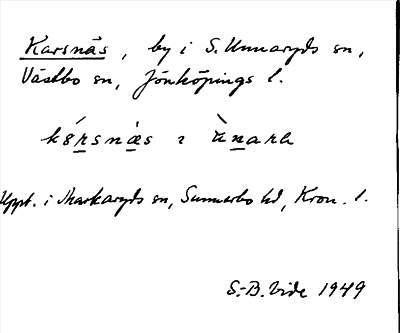 Karsnäs, by i S. Unnaryds sn,
Västbo sn, Jönköpings l.
i
Uppt. i Markaryds sn, Sunnerbo hd, Kron. l.
S.-B. Vide 1949